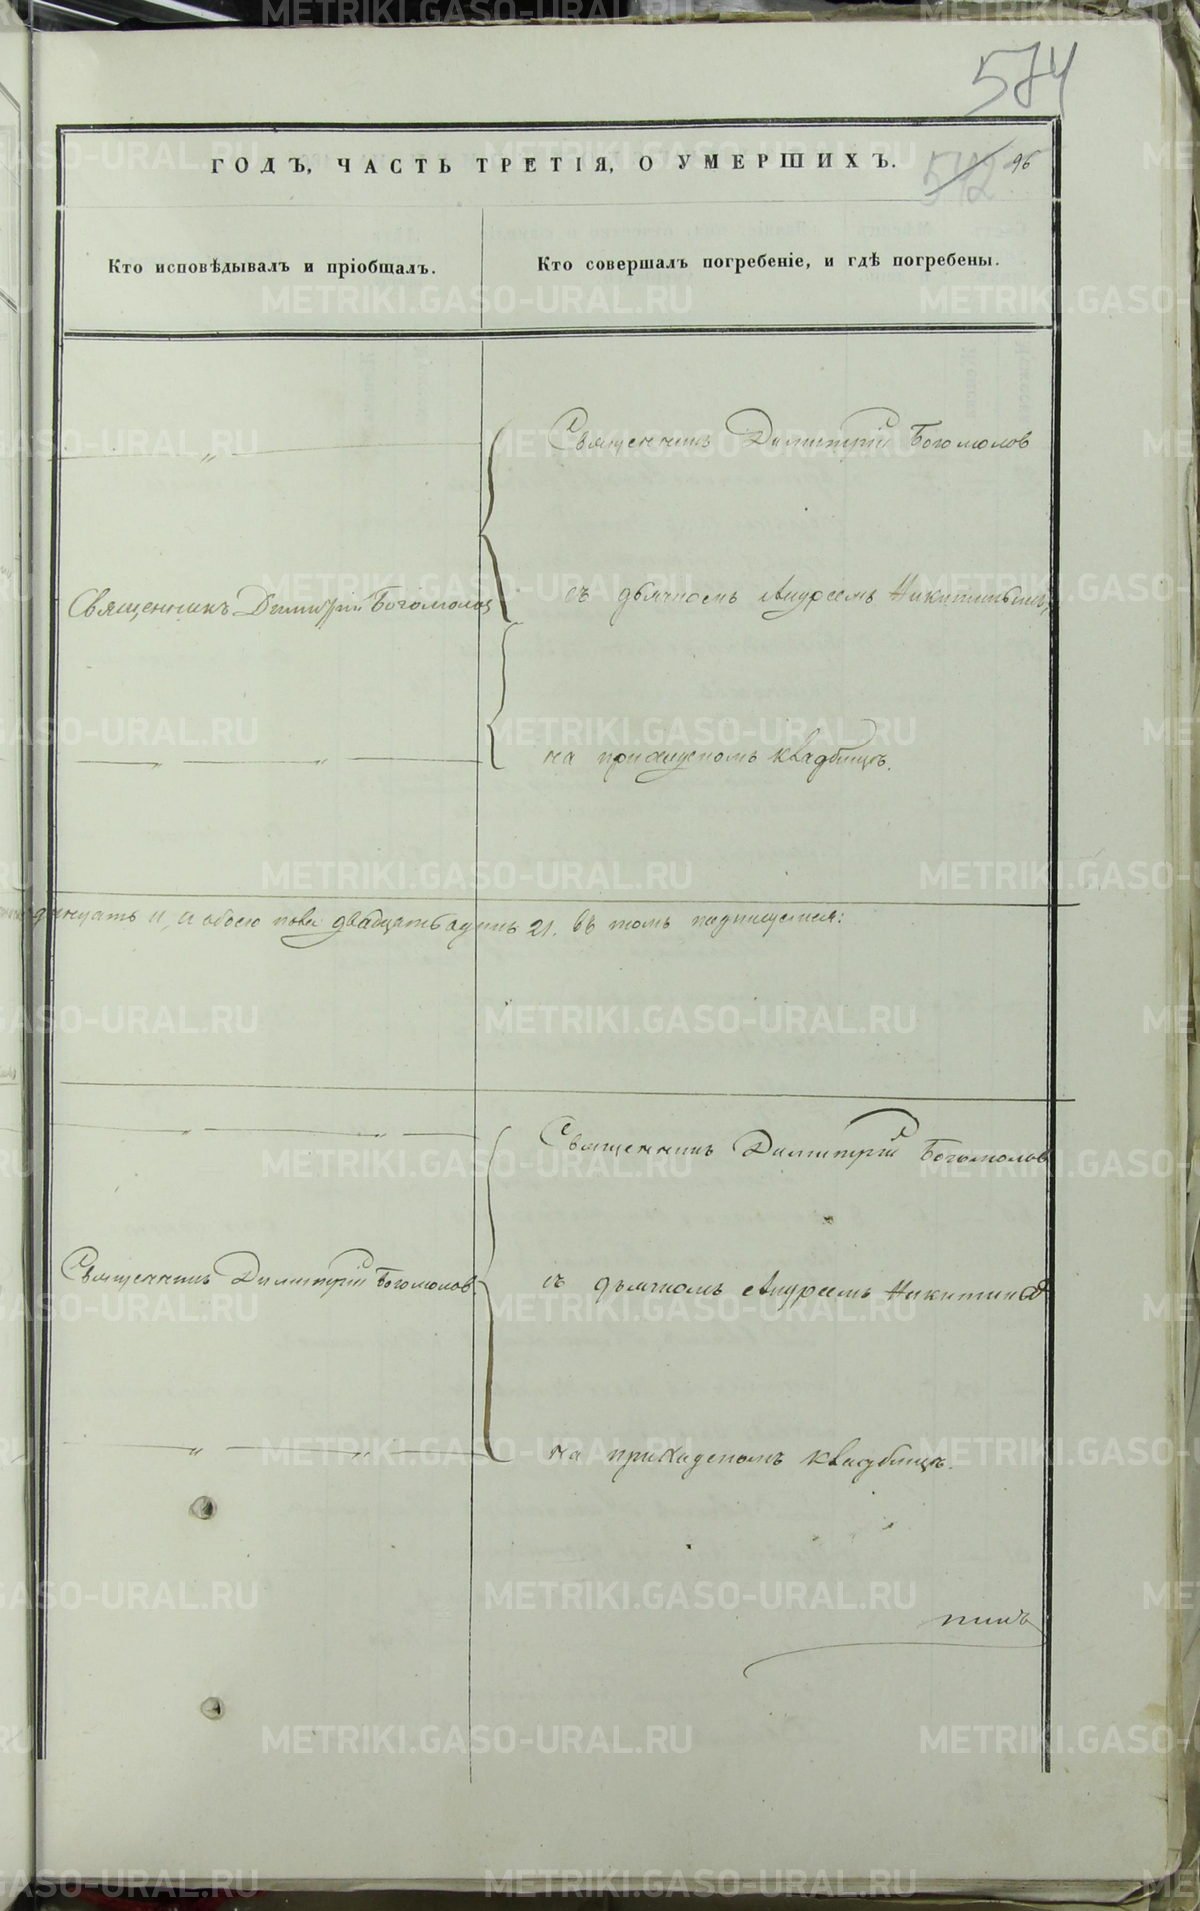 574
ГОДЪ, ЧАСТЬ ТРЕТІЯ, О УМЕРШИХЪ.
542 96
Кто исповѣдывалъ и пріобщалъ.
Кто совершалъ погребеніе, и гдѣ погребены.
Священникъ Димитрій Богомолов
Священникъ Димитрій Богомолов
съ дьячкомъ Андреемъ Никитинымъ,
на приходскомъ кладбищѣ.
11, и обоего пола двадцать одинъ 21. въ томъ подпишемся:
Священникъ Димитрій Богомолов
Священникъ Димитрій Богомолов
съ дьячкомъ Андреемъ Никитин
на приходскомъ кладбищѣ.
METRIKI.GASO-URAL.RU